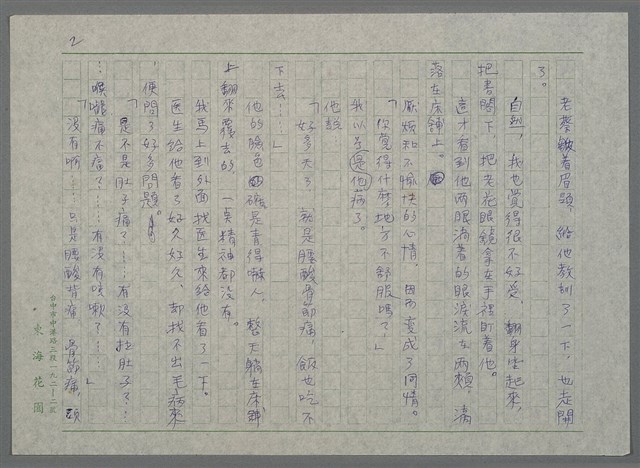 2
老蔡皺着眉頭，給他教訓了一下，也走開
了。
自然，我也覺得很不好受，翻身坐起來，
把書閤下，把老花眼鏡拿在手裡盯着他。
這才看到他兩眼滴著的眼淚流在兩頰，滴
落在床鋪上。
厭煩和不愉快的心情，因而變成了同情。
「你覺得什麼地方不舒服嗎？」
我以為是他病了。
他說
「好多天了，就是腰酸骨節痛，飯也吃不
下去……」
他的臉色確是青得嚇人，整天躺在床鋪
上翻來覆去的，一莫精神都沒有。
我馬上到外面找医生來給他看了一下。
医生給他看了好久好久，却找不出毛病來
，便問了好多問題。
「是不是肚子痛？……有沒有拉肚子？…
…喉嚨痛不痛？……有沒有咳嗽？……」
「沒有啊……只是腰酸背痛，骨節痛，頭
台中市中港路三段一九二-二九
東海花園